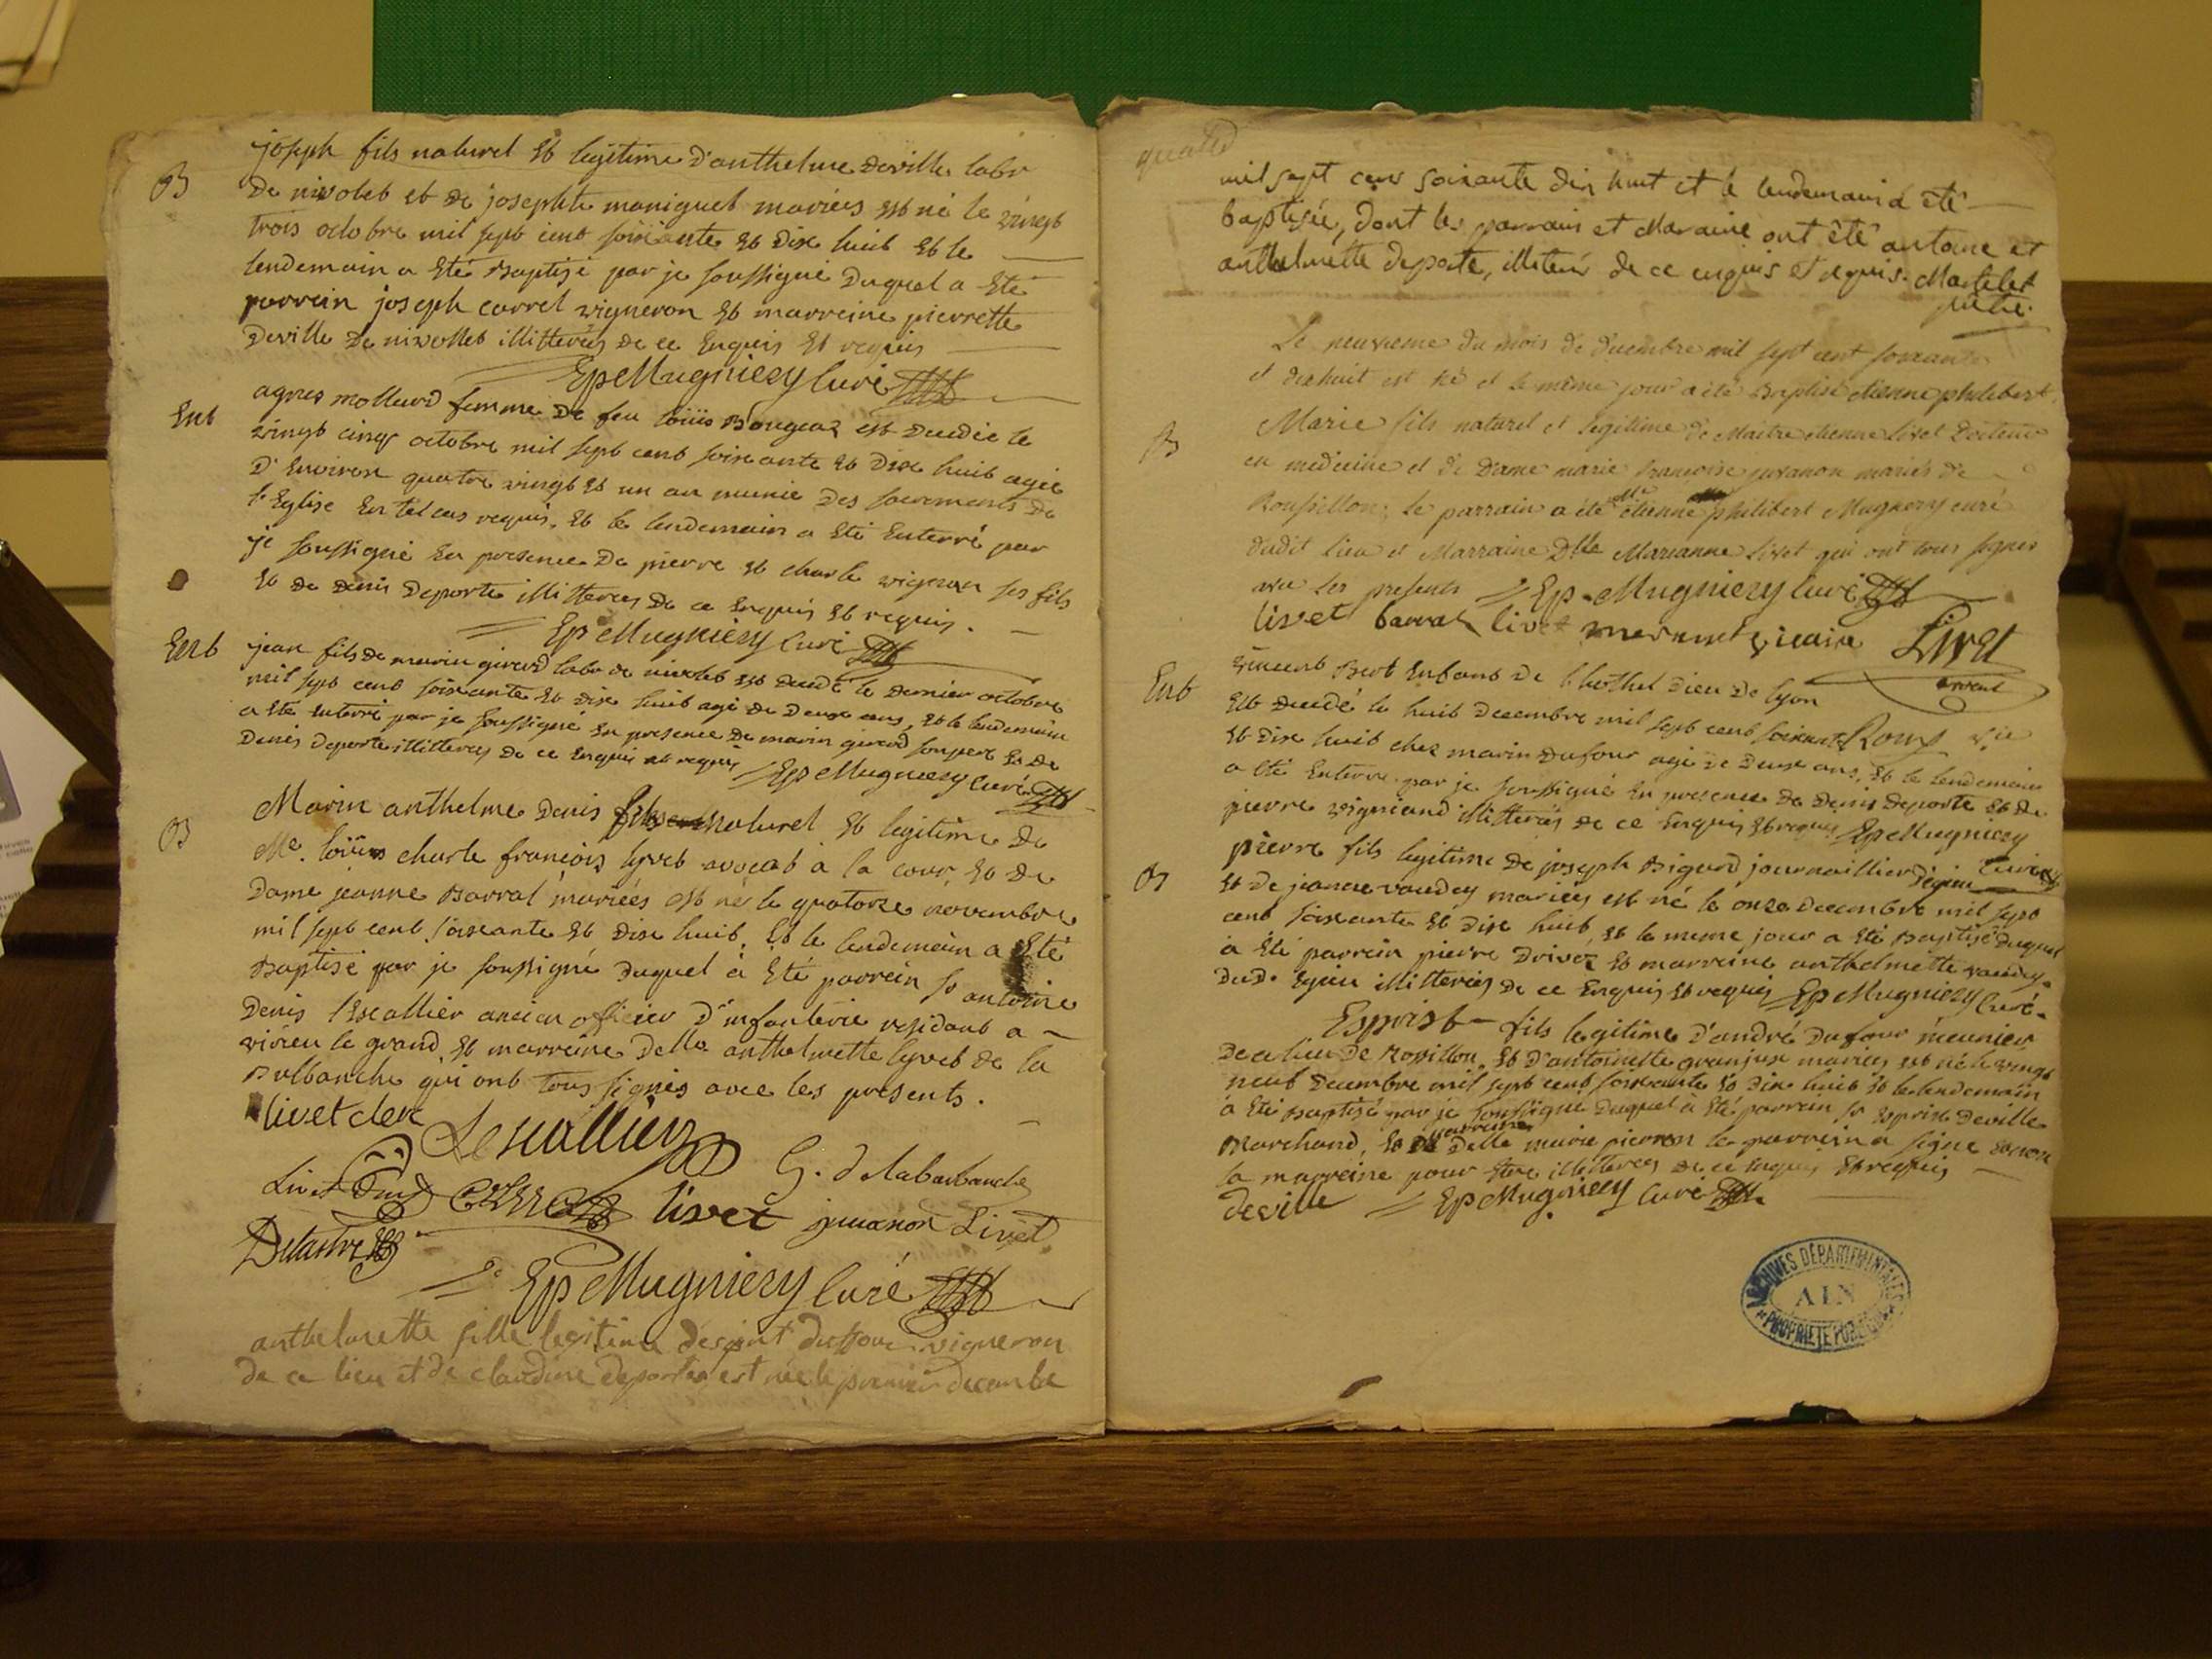 B
joseph fils naturel et legitime d'anthelme deville labr
de nivolet et de josephte maniguet mariés est né le vingt
trois octobre mil sept cent soixante et dix huit et le
lendemain a eté Baptisé par je soussigné duquel a eté
parrein joseph carrel vigneron et marreine pierrette
deville de nivollet illitterés de ce Enquis et requis
Ep Mugniery Curé
Ent
agnes mollurd femme de feu loüis Bougeaz est decedée le
vingt cinq octobre mil sept cent soixante et dix huit agée
d'Environ quatre vingt et un an munie des sacrements de
l'Eglise En tel cas requis, et le lendemain a eté Enterré par
je soussigné En presence de pierre et charle vignon ses fils
et de denis deporte illitteres de ce Enquis et requis.
Ep Mugniery Curé
Ent
jean fils de marin girard labr de nivolet est decedé le dernier octobre
mil sept cent soixante et dix huit agé de deux ans, et le lendemain
a eté Enterré par je soussigné En presence de marin girard son pere et de
denis deporte illitteres de ce Enquis et requis Ep Mugniery Curé
B
Marin anthelme denis fils naturel et legitime de
Me. loüis charle françois lyvet avocat à la cour et de
dame jeanne Barral mariés est né le quatorze novembre
mil sept cent soixante et dix huit. Et le lendemain a Eté
Baptisé par je soussigné duquel à Eté parrein sr antoine
denis lescallier ancien officier d'infanterie residant a
virieu le grand et marreine delle anthelmette lyvet de la
Balbanche qui ont tous signés avec les presents.
livet clerc
Lescallier
G. delabarbanche
Livet
livet juvanon Livet
Delastre
Ep Mugniery Curé
anthelmette fille legitime de
vigneron
de ce lieu et de claudine deporte est née le premier decembre
mil sept cens soixante dix huit et le lendemain a été
baptisée, dont les parrain et Maraine ont été antoine et
anthelmette deporte, illiterés de ce enquis et requis. Martelet
prêtre.
B
Le neuvieme du mois de decembre mil sept cent soixante
et dix huit est né et le même jour a été Baptisé etienne philibert
Marie fils naturel et legitime de Maitre etienne livet Docteur
en medecine et de Dame marie françoise juvanon mariés de
Roussillon; le parrain a été etienne philibert Mugniery curé
dudit lieu et Marraine Dlle Marianne livet qui ont tous signés
avec les presents Ep Mugniery Curé
livet barral livet
vicaire Livet
Ent
vincent Bert Enfant de l'hothel dieu de lyon
est decedé le huit decembre mil sept cent soixante Roux
et dix huit chez marin dufour agé de deux ans, et le lendemain
a eté Enterré par je soussigné En presence de denis deporte et de
pierre vigniand illitterés de ce Enquis et requis Ep Mugniery
Curé
B
pierre fils legitime de joseph Bigard journaillier d'ejeu
et de jeanne vaudey mariés est né le onze decembre mil sept
cent soixante et dix huit, et le meme jour a eté Baptisé duquel
à été parrein pierre drivez et marreine anthelmette vaudey
dud. Ejeu illitterés de ce Enquis et requis Ep Mugniery Curé.
Esprit fils legitime d'andré dufour meunier
de ce lieu de Rossillon, et d'antoinette granjux mariés est né le vingt
neuf decembre mil sept cent soixante et dix huit et le lendemain
à Eté Baptisé par je soussigné duquel à Eté parrein sr Esprit deville
marreine
Marchand, et delle marie pierron le parrein a signé et non
la marreine pour être illitteres de ce Enquis et requis
deville Ep Mugniery Curé
ARCHIVES DÉPARTEMENTALES
AIN
PROPRIÉTÉ PUBLIQUE